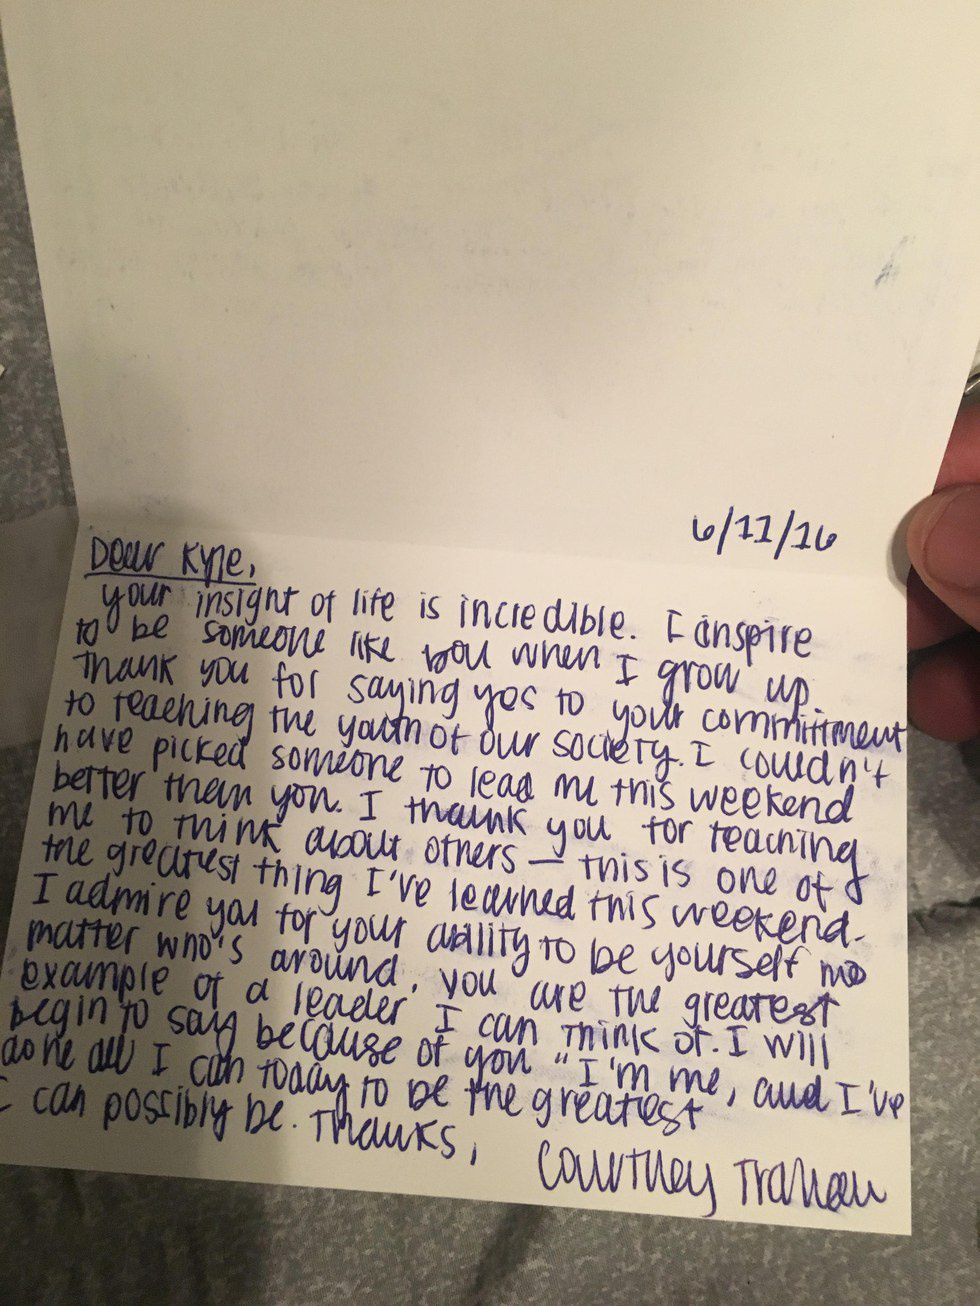 6/11/16
Dear Kyle,
your insight of life is incredible. I inspire
to be someone like you when I grow up.
Thank you for saying yes to your committment
to teaching the youth of our society. I couldn't
have picked someone to lead me this weekend
better than you. I thank you for teaching
me to think about others — this is one of
the greatest thing I've learned this weekend.
I admire you for your ability to be yourself no
matter who's around. you are the greatest
example of a leader I can think of. I will
begin to say because of you "I'm me, and I've
done all I can today to be the greatest
I can possibly be. Thanks,
Courtney Trahan